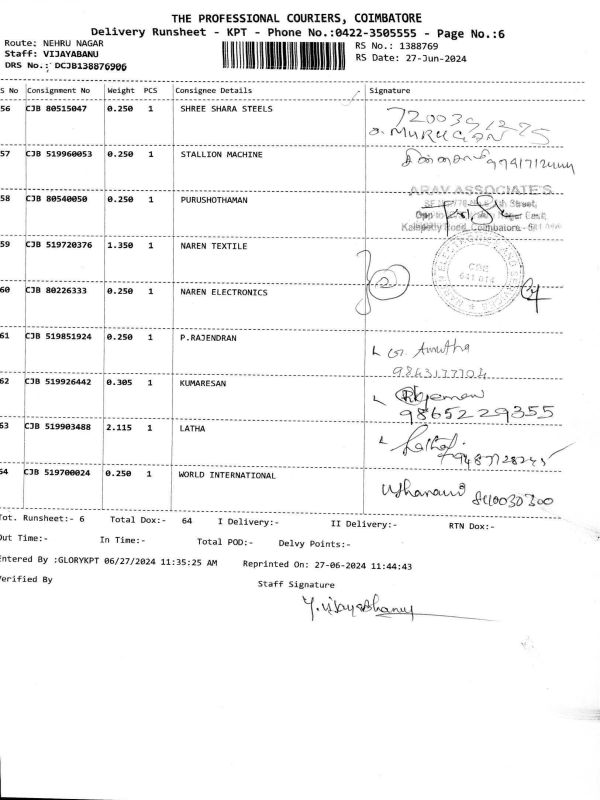 THE PROFESSIONAL COURIERS, COIMBATORE
Delivery Runsheet - KPT - Phone No.:0422-3505555 - Page No.:6
Route: NEHRU NAGAR
RS No.: 1388769
Staff: VIJAYABANU
RS Date: 27-Jun-2024
DRS No.: DCJB138876906
S No Consignment No Weight PCS Consignee Details Signature
56 CJB 80515047 0.250 1 SHREE SHARA STEELS
MURUGAN
57 CJB 519960053 0.250 1 STALLION MACHINE
58 CJB 80540050 0.250 1 PURUSHOTHAMAN
ARAV ASSOCIATE'S
59 CJB 519720376 1.350 1 NAREN TEXTILE
60 CJB 80226333 0.250 1 NAREN ELECTRONICS
CBE
641 014
61 CJB 519851924 0.250 1 P.RAJENDRAN
Amutha
9843177704
62 CJB 519926442 0.305 1 KUMARESAN
9865229355
63 CJB 519903488 2.115 1 LATHA
64 CJB 519700024 0.250 1 WORLD INTERNATIONAL
Tot. Runsheet:- 6 Total Dox:- 64 I Delivery:- II Delivery:- RTN Dox:-
Out Time:- In Time:- Total POD:- Delvy Points:-
Entered By :GLORYKPT 06/27/2024 11:35:25 AM Reprinted On: 27-06-2024 11:44:43
Verified By
Staff Signature